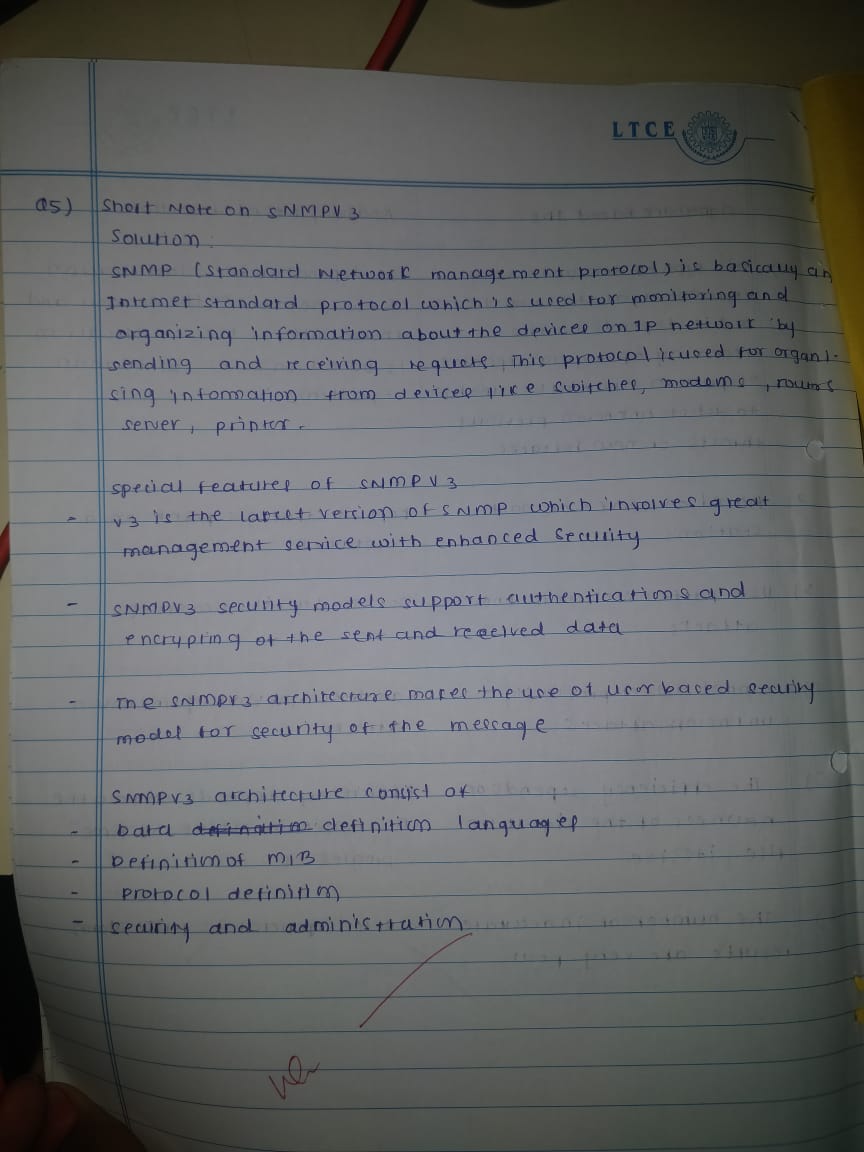 LTCE
Q5) Short Note on SNMPV3
Solution:
SNMP (Standard Network management protocol) is basically an
Internet standard protocol which is used for monitoring and
organizing information about the devices on IP network by
sending and receiving requets. This protocol is used for organi-
sing information from devices like switches, modems, routrs
server, printer.
special features of SNMPV3
- V3 is the latest version of SNMP which involves great
management service with enhanced security
- SNMPV3 security models support authentications and
encrypting of the sent and received data
- The SNMPV3 architecture makes the use of user based security
model for security of the message
SNMPV3 architecture consist of
- Data definition languages
- Definition of MIB
- Protocol definition
- security and administration